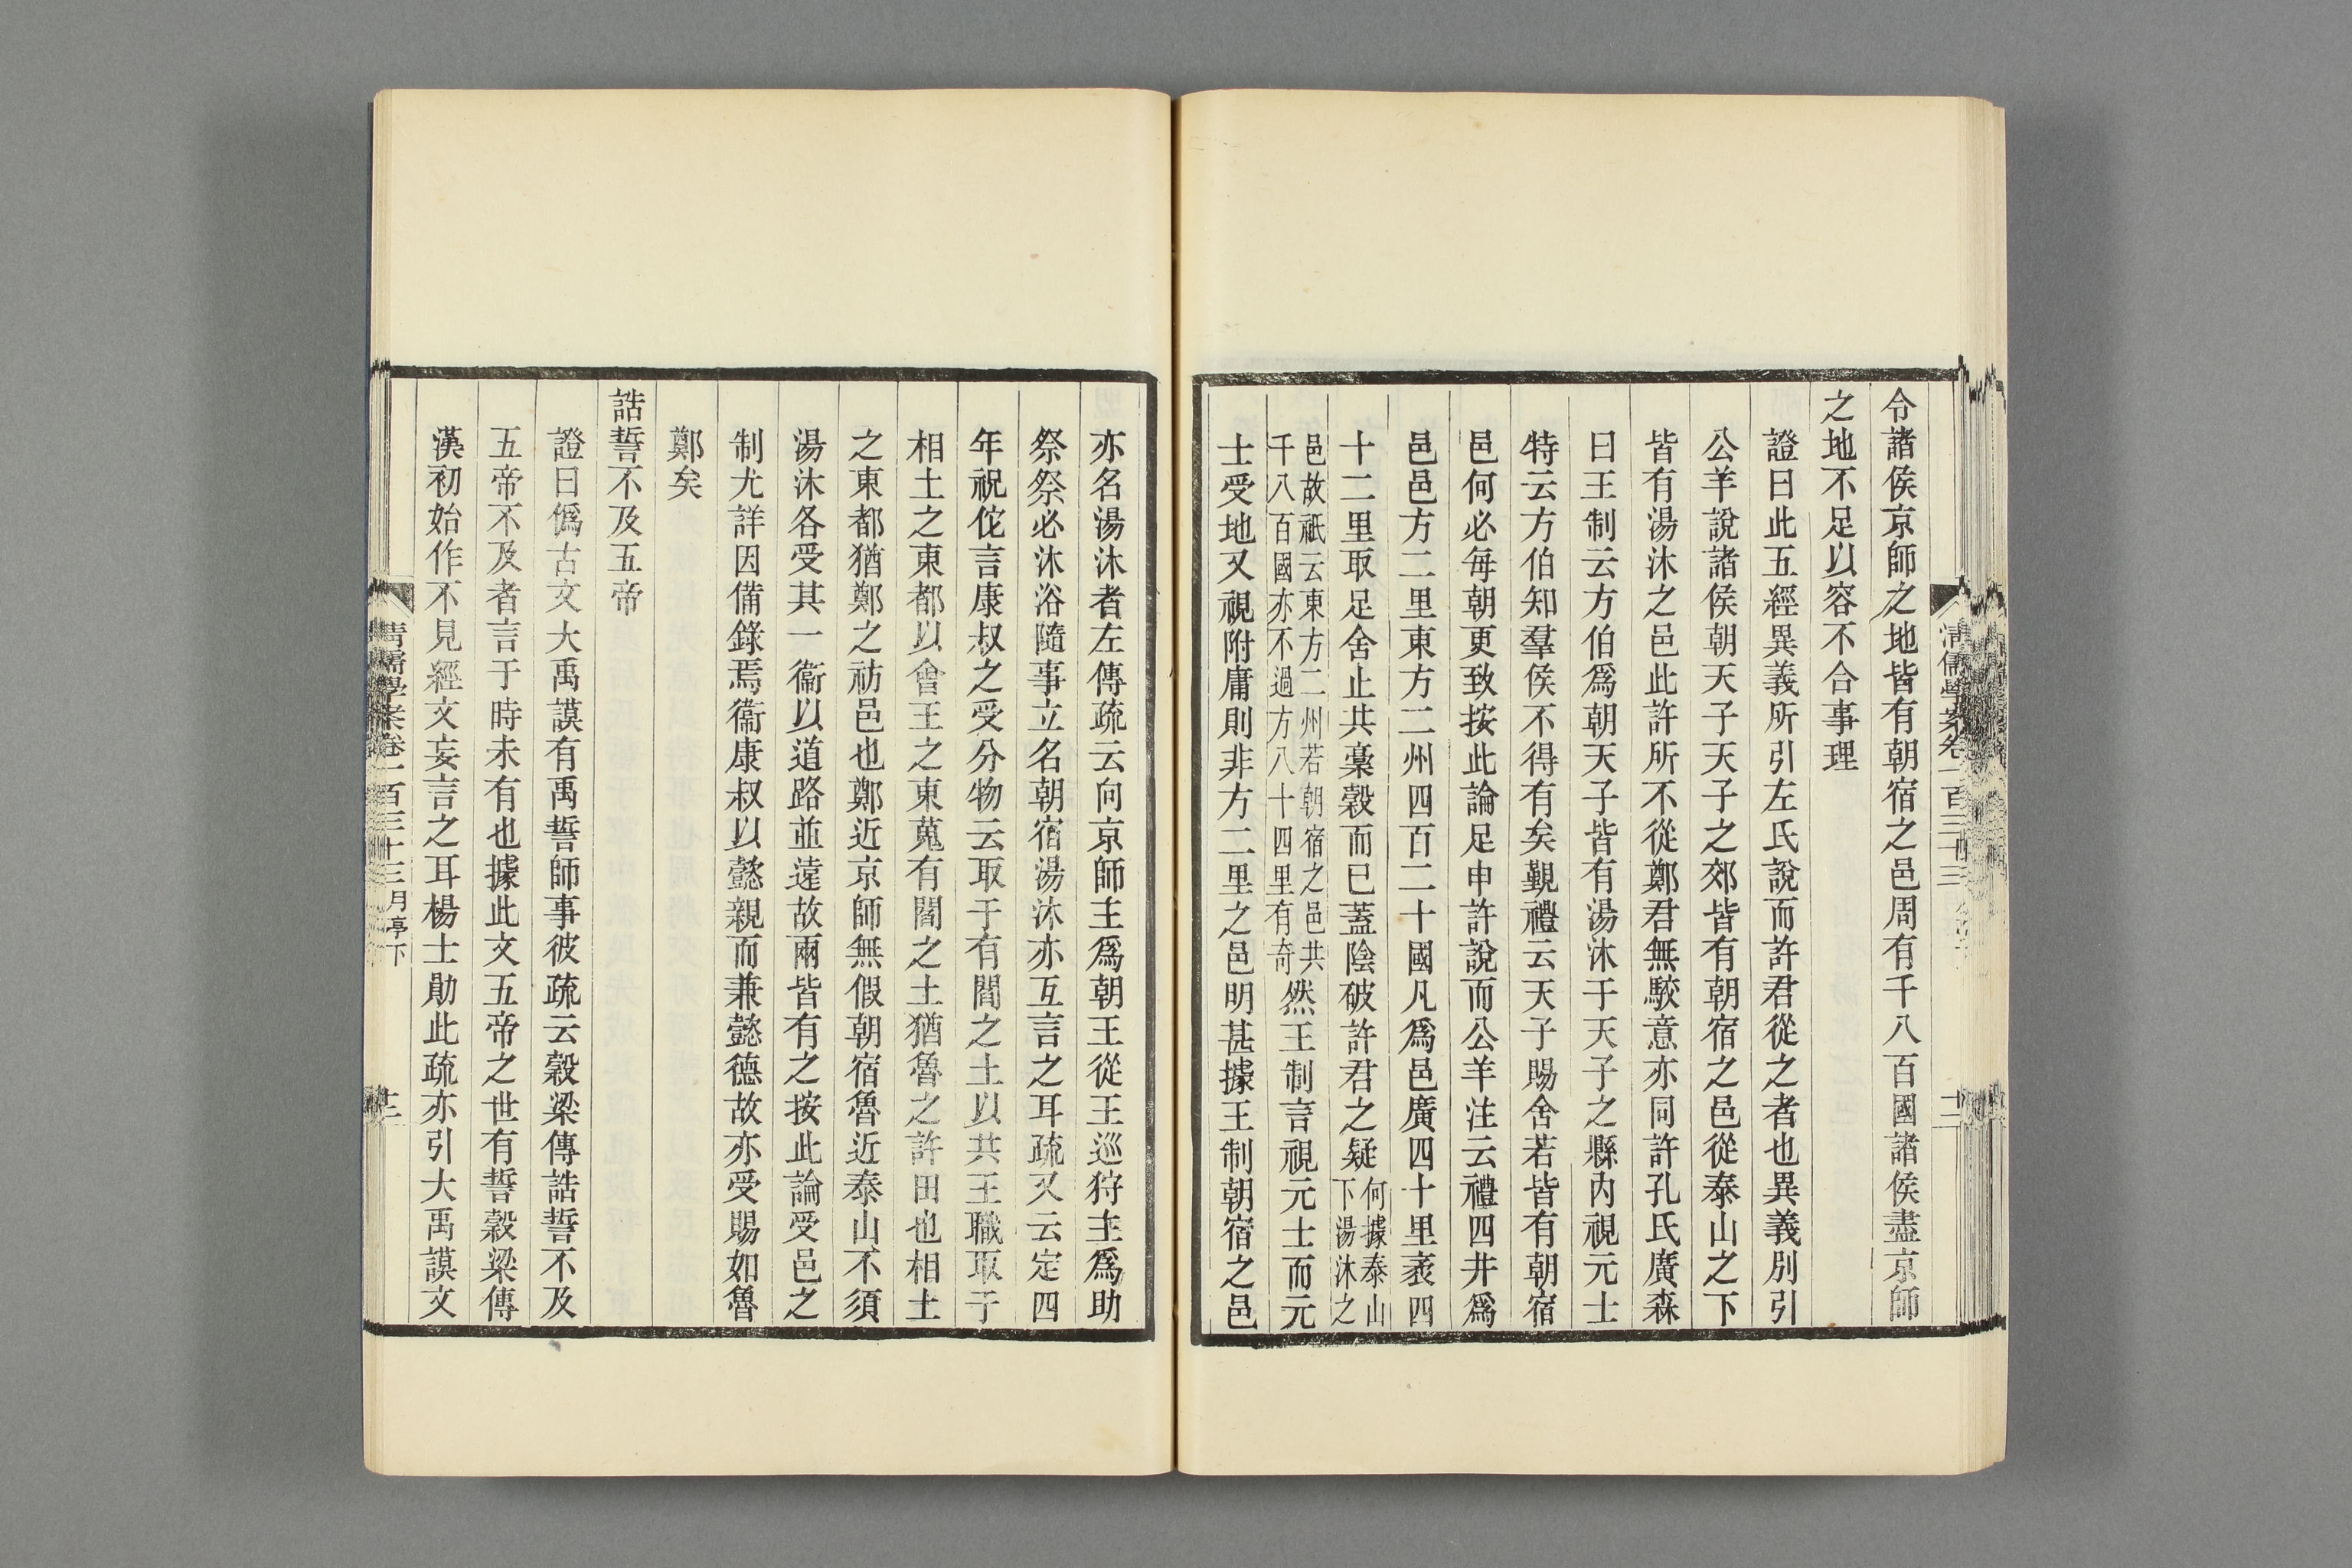 令諸侯京師之地皆有朝宿之邑周有千八百國諸侯盡京師
之地不足以容不合事理
證曰此五經異義所引左氏說而許君從之者也異義別引
公羊說諸侯朝天子天子之郊皆有朝宿之邑從泰山之下
皆有湯沐之邑此許所不從鄭君無駮意亦同許孔氏廣森
曰王制云方伯爲朝天子皆有湯沐于天子之縣內視元士
特云方伯知羣侯不得有矣覲禮云天子賜舍若皆有朝宿
邑何必每朝更致按此論足申許說而公羊注云禮四井爲
邑邑方二里東方二州四百二十國凡爲邑廣四十里袤四
十二里取足舍止共槀穀而已蓋陰破許君之疑何據泰山下湯沐之
邑故祇云東方二州若朝宿之邑共千八百國亦不過方八十四里有奇然王制言視元士而元
士受地又視附庸則非方二里之邑明甚據王制朝宿之邑
清儒學案卷一百三十三
十二
亦名湯沐者左傳疏云向京師主爲朝王從王巡狩主爲助
祭祭必沐浴隨事立名朝宿湯沐亦互言之耳疏又云定四
年祝佗言康叔之受分物云取于有閻之土以共王職取于
相土之東都以會王之東蒐有閻之土猶魯之許田也相土
之東都猶鄭之祊邑也鄭近京師無假朝宿魯近泰山不須
湯沐各受其一衞以道路並遠故兩皆有之按此論受邑之
制尤詳因備錄焉衞康叔以懿親而兼懿德故亦受賜如魯
鄭矣
誥誓不及五帝
證曰僞古文大禹謨有禹誓師事彼疏云穀梁傳誥誓不及
五帝不及者言于時未有也據此文五帝之世有誓穀梁傳
漢初始作不見經文妄言之耳楊士勛此疏亦引大禹謨文
清儒學案卷一百三十三 月亭下